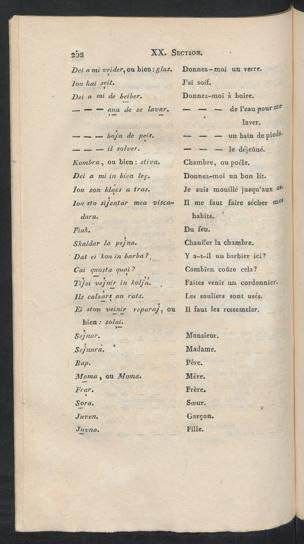 202 XX. Section.
Dei a mi veider, ou bien: glas. Donnez-moi un verre.
Iou hai seit. J'ai soif.
Dei a mi de beiber. Donnez-moi à boire.
— — — aua de se lavar. — — — de l'eau pour me
laver.
— — — boin de peis. — — — un bain de pieds
— — — il solver. — — — le déjeûné.
Kombra, ou bien: stiva. Chambre, ou poële.
Dei a mi in bien leg. Donnez-moi un bon lit.
Iou son blaes a tras. Je suis mouillé jusqu'aux os.
Iou sto sijentar mea vesca- Il me faut faire sécher mes
dura. habits.
Fiuk. Du feu.
Skaldar la pejna. Chauffer la chambre.
Dat ei kou in barba? Y a-t-il un barbier ici?
Cai quosta quoi? Combien coûte cela?
Vejnir in Faites venir un cordonnier.
Ils calsers en rats. Les souliers sont usés.
Ei ston veinir reparaj, ou Il faut les ressemeler.
bien: solai.
Sejnur. Monsieur.
Sejnura. Madame.
Bap. Père.
Mama, ou Moma. Mère.
Frar. Frère.
Sora. Sœur.
Juven. Garçon.
Juvna. Fille.